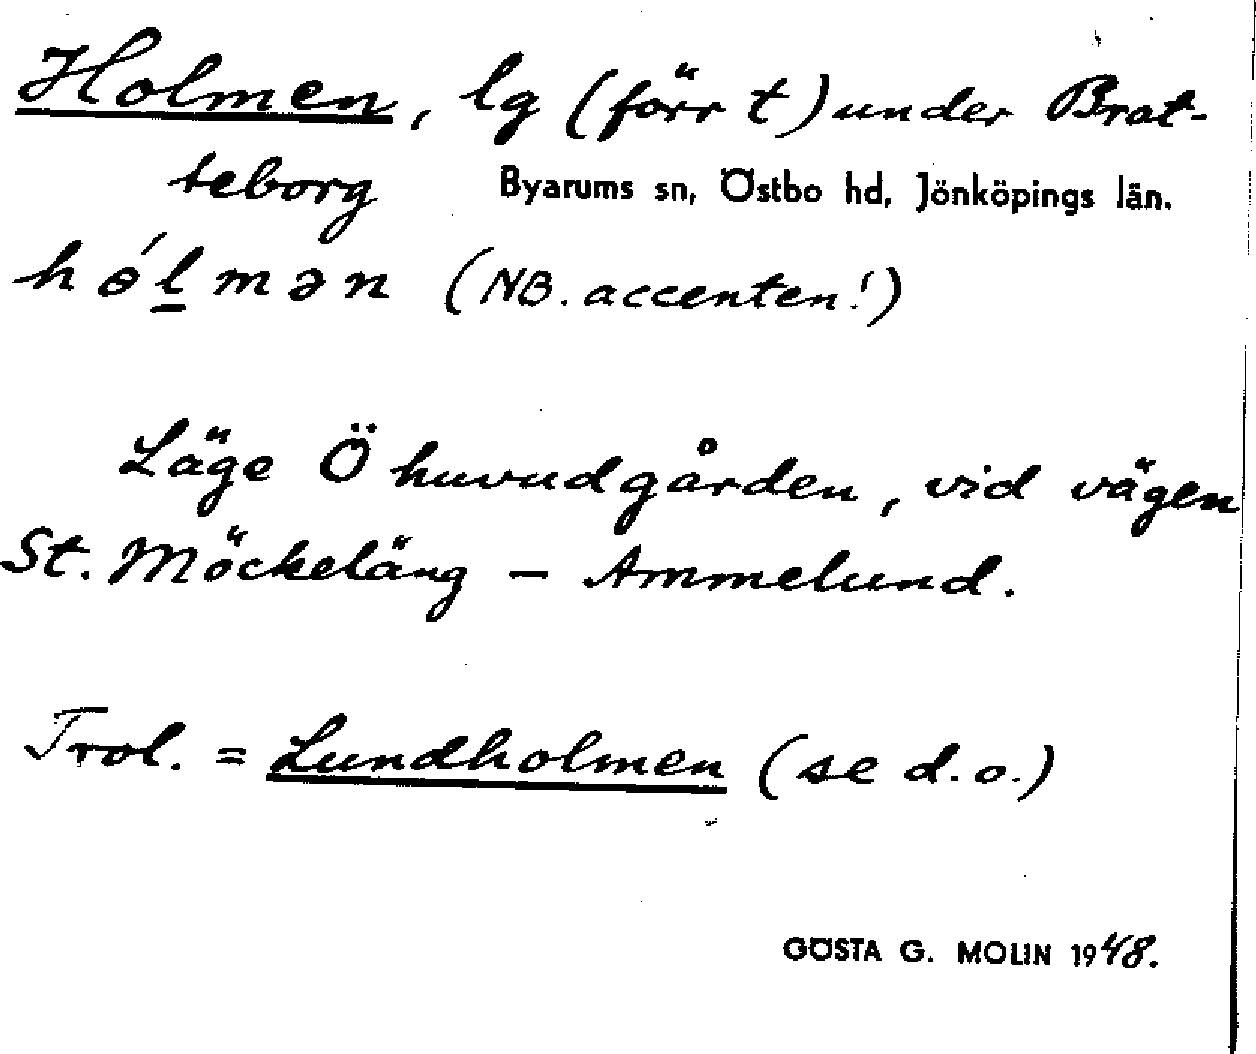 Holmen, lg (förr t) under Brat-
teborg Byarums sn, Östbo hd, Jönköpings län.
hɵ́l̲mən (NB. accenten!)
Läge Ö huvudgården, vid vägen
St. Möckeläng – Ammelund.
Trol. = Lundholmen (se d.o.)
GÖSTA G. MOLIN 1948.